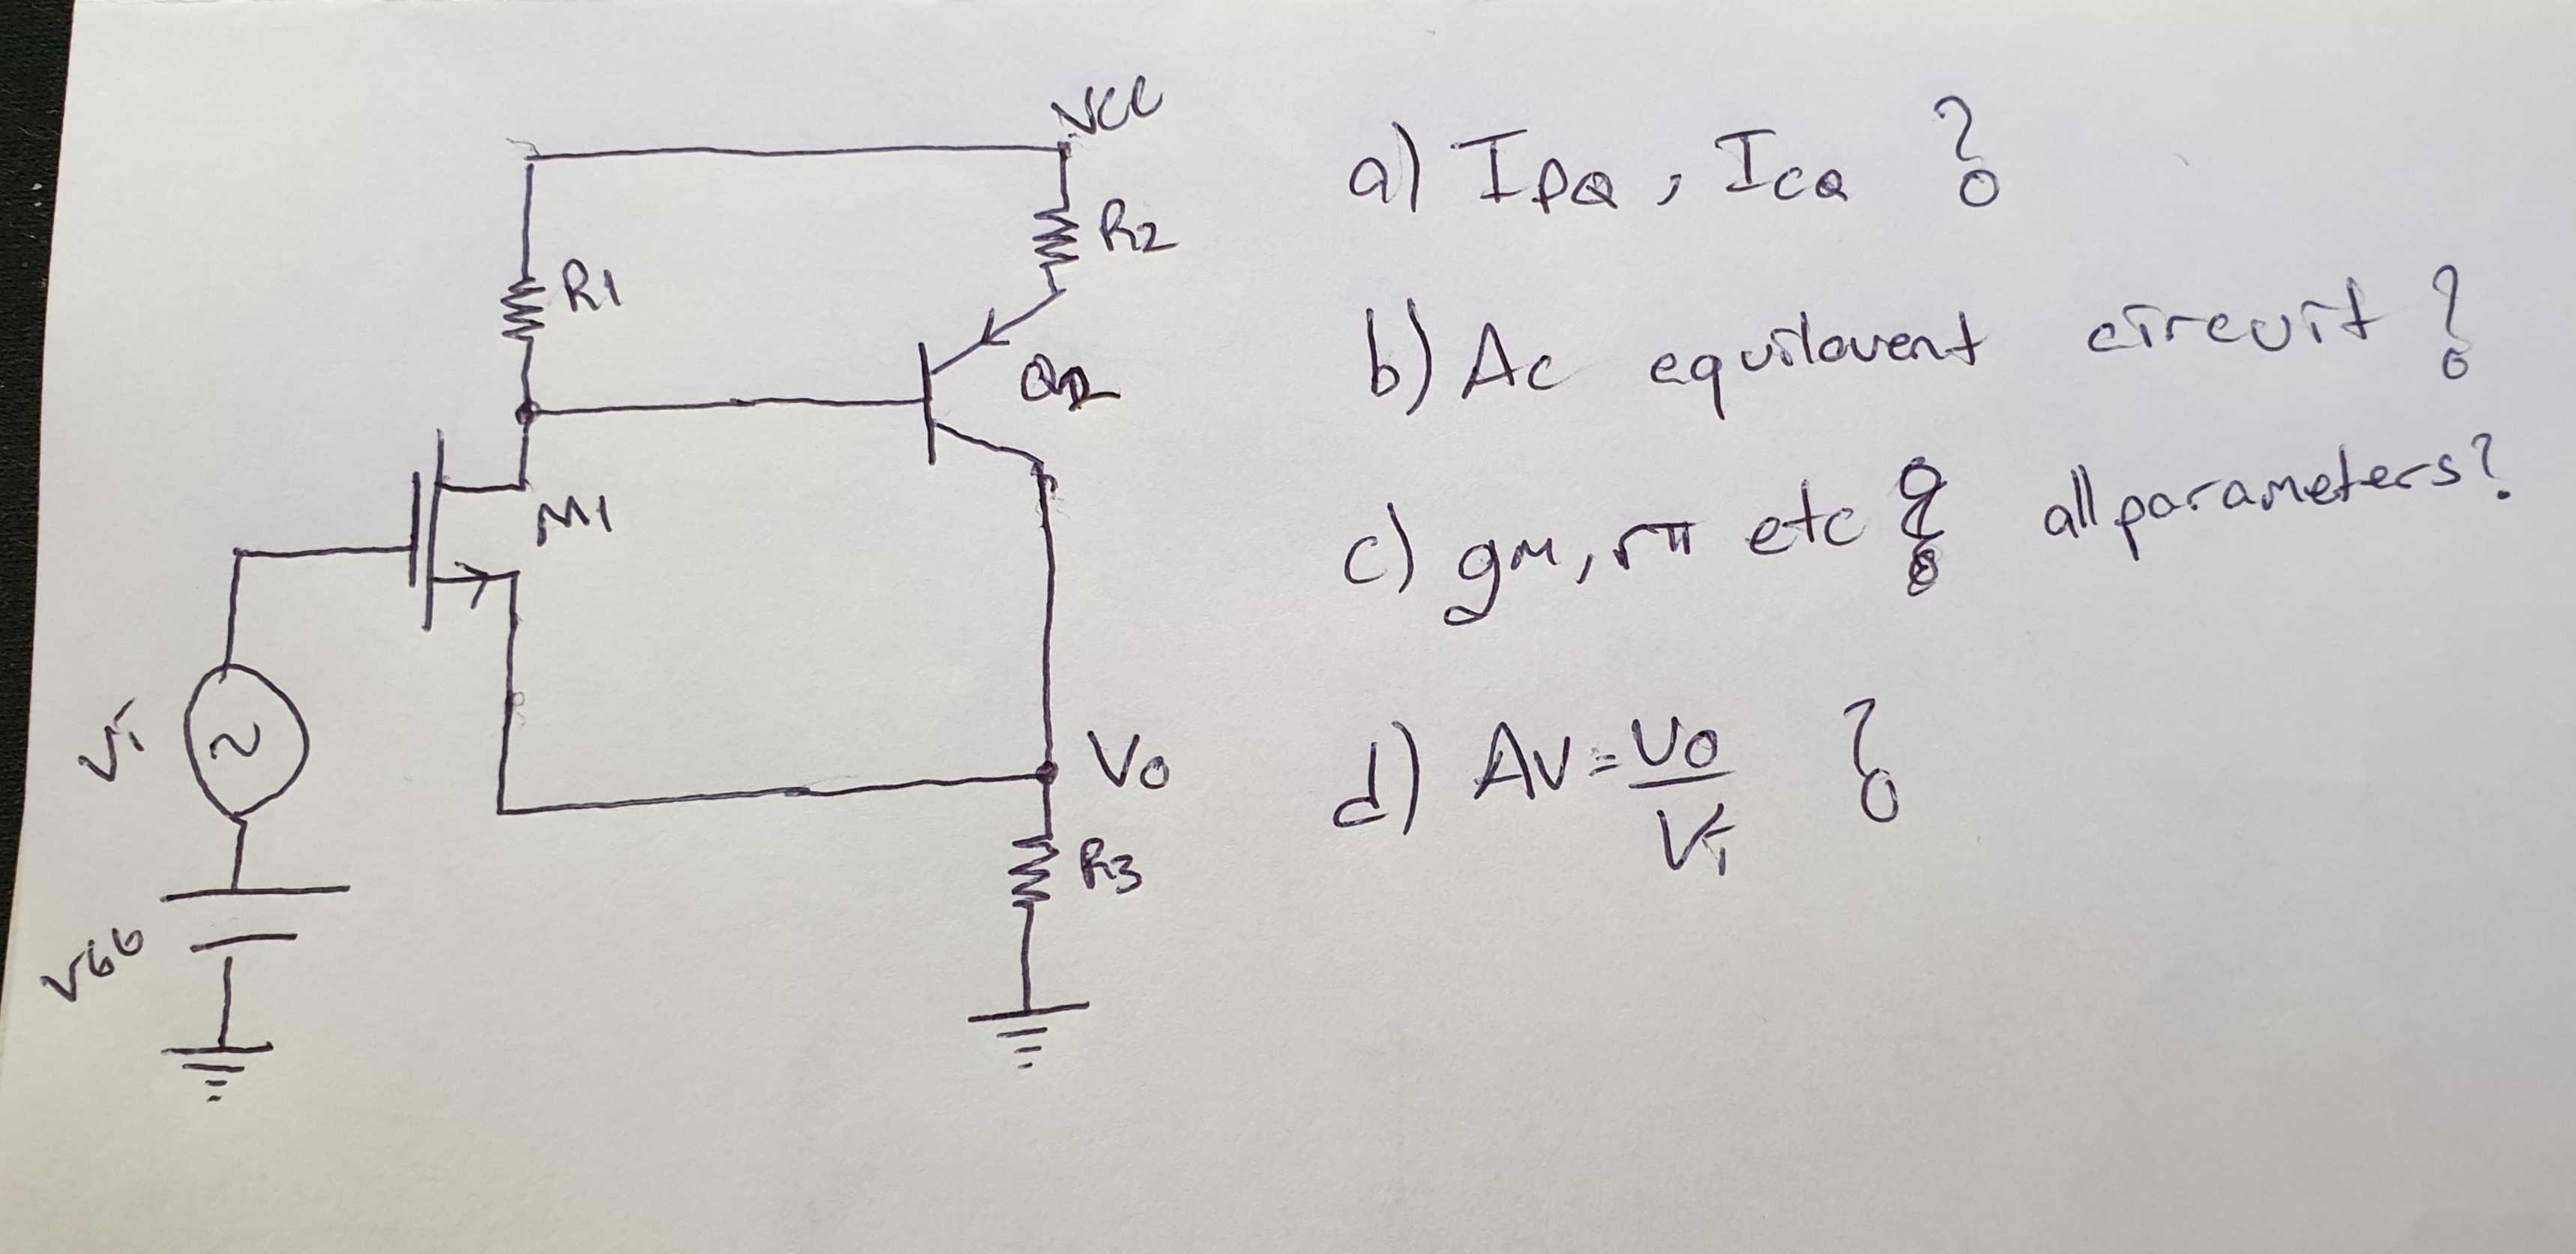 VCC
R2
R1
Q2
M1
Vi
Vo
R3
VGG
a) IDQ, ICQ ?
b) Ac equilavent circuit ?
c) gm, rπ etc ? all parameters?
d) AV = Vo / Vi ?